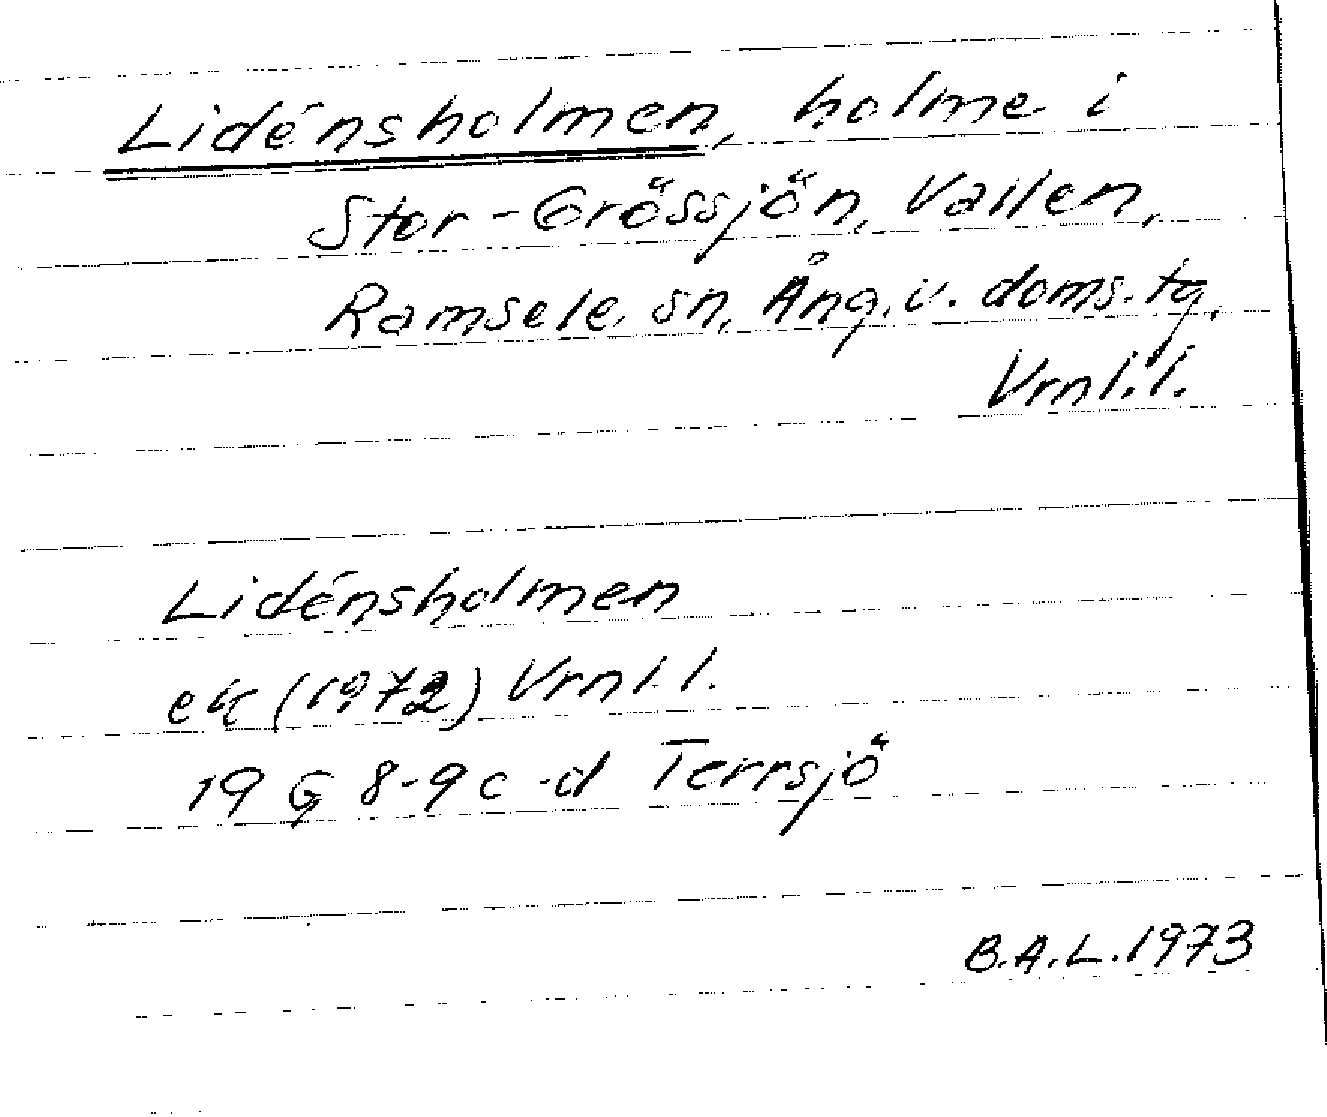 Lidénsholmen, holme i
Stor-Grössjön, Vallen,
Ramsele sn, Ång. v. doms. tg,
Vrnl.l.
Lidénsholmen
ek (1972) Vrnl.l.
19 G 8-9 c-d Terrsjö
B.A.L. 1973